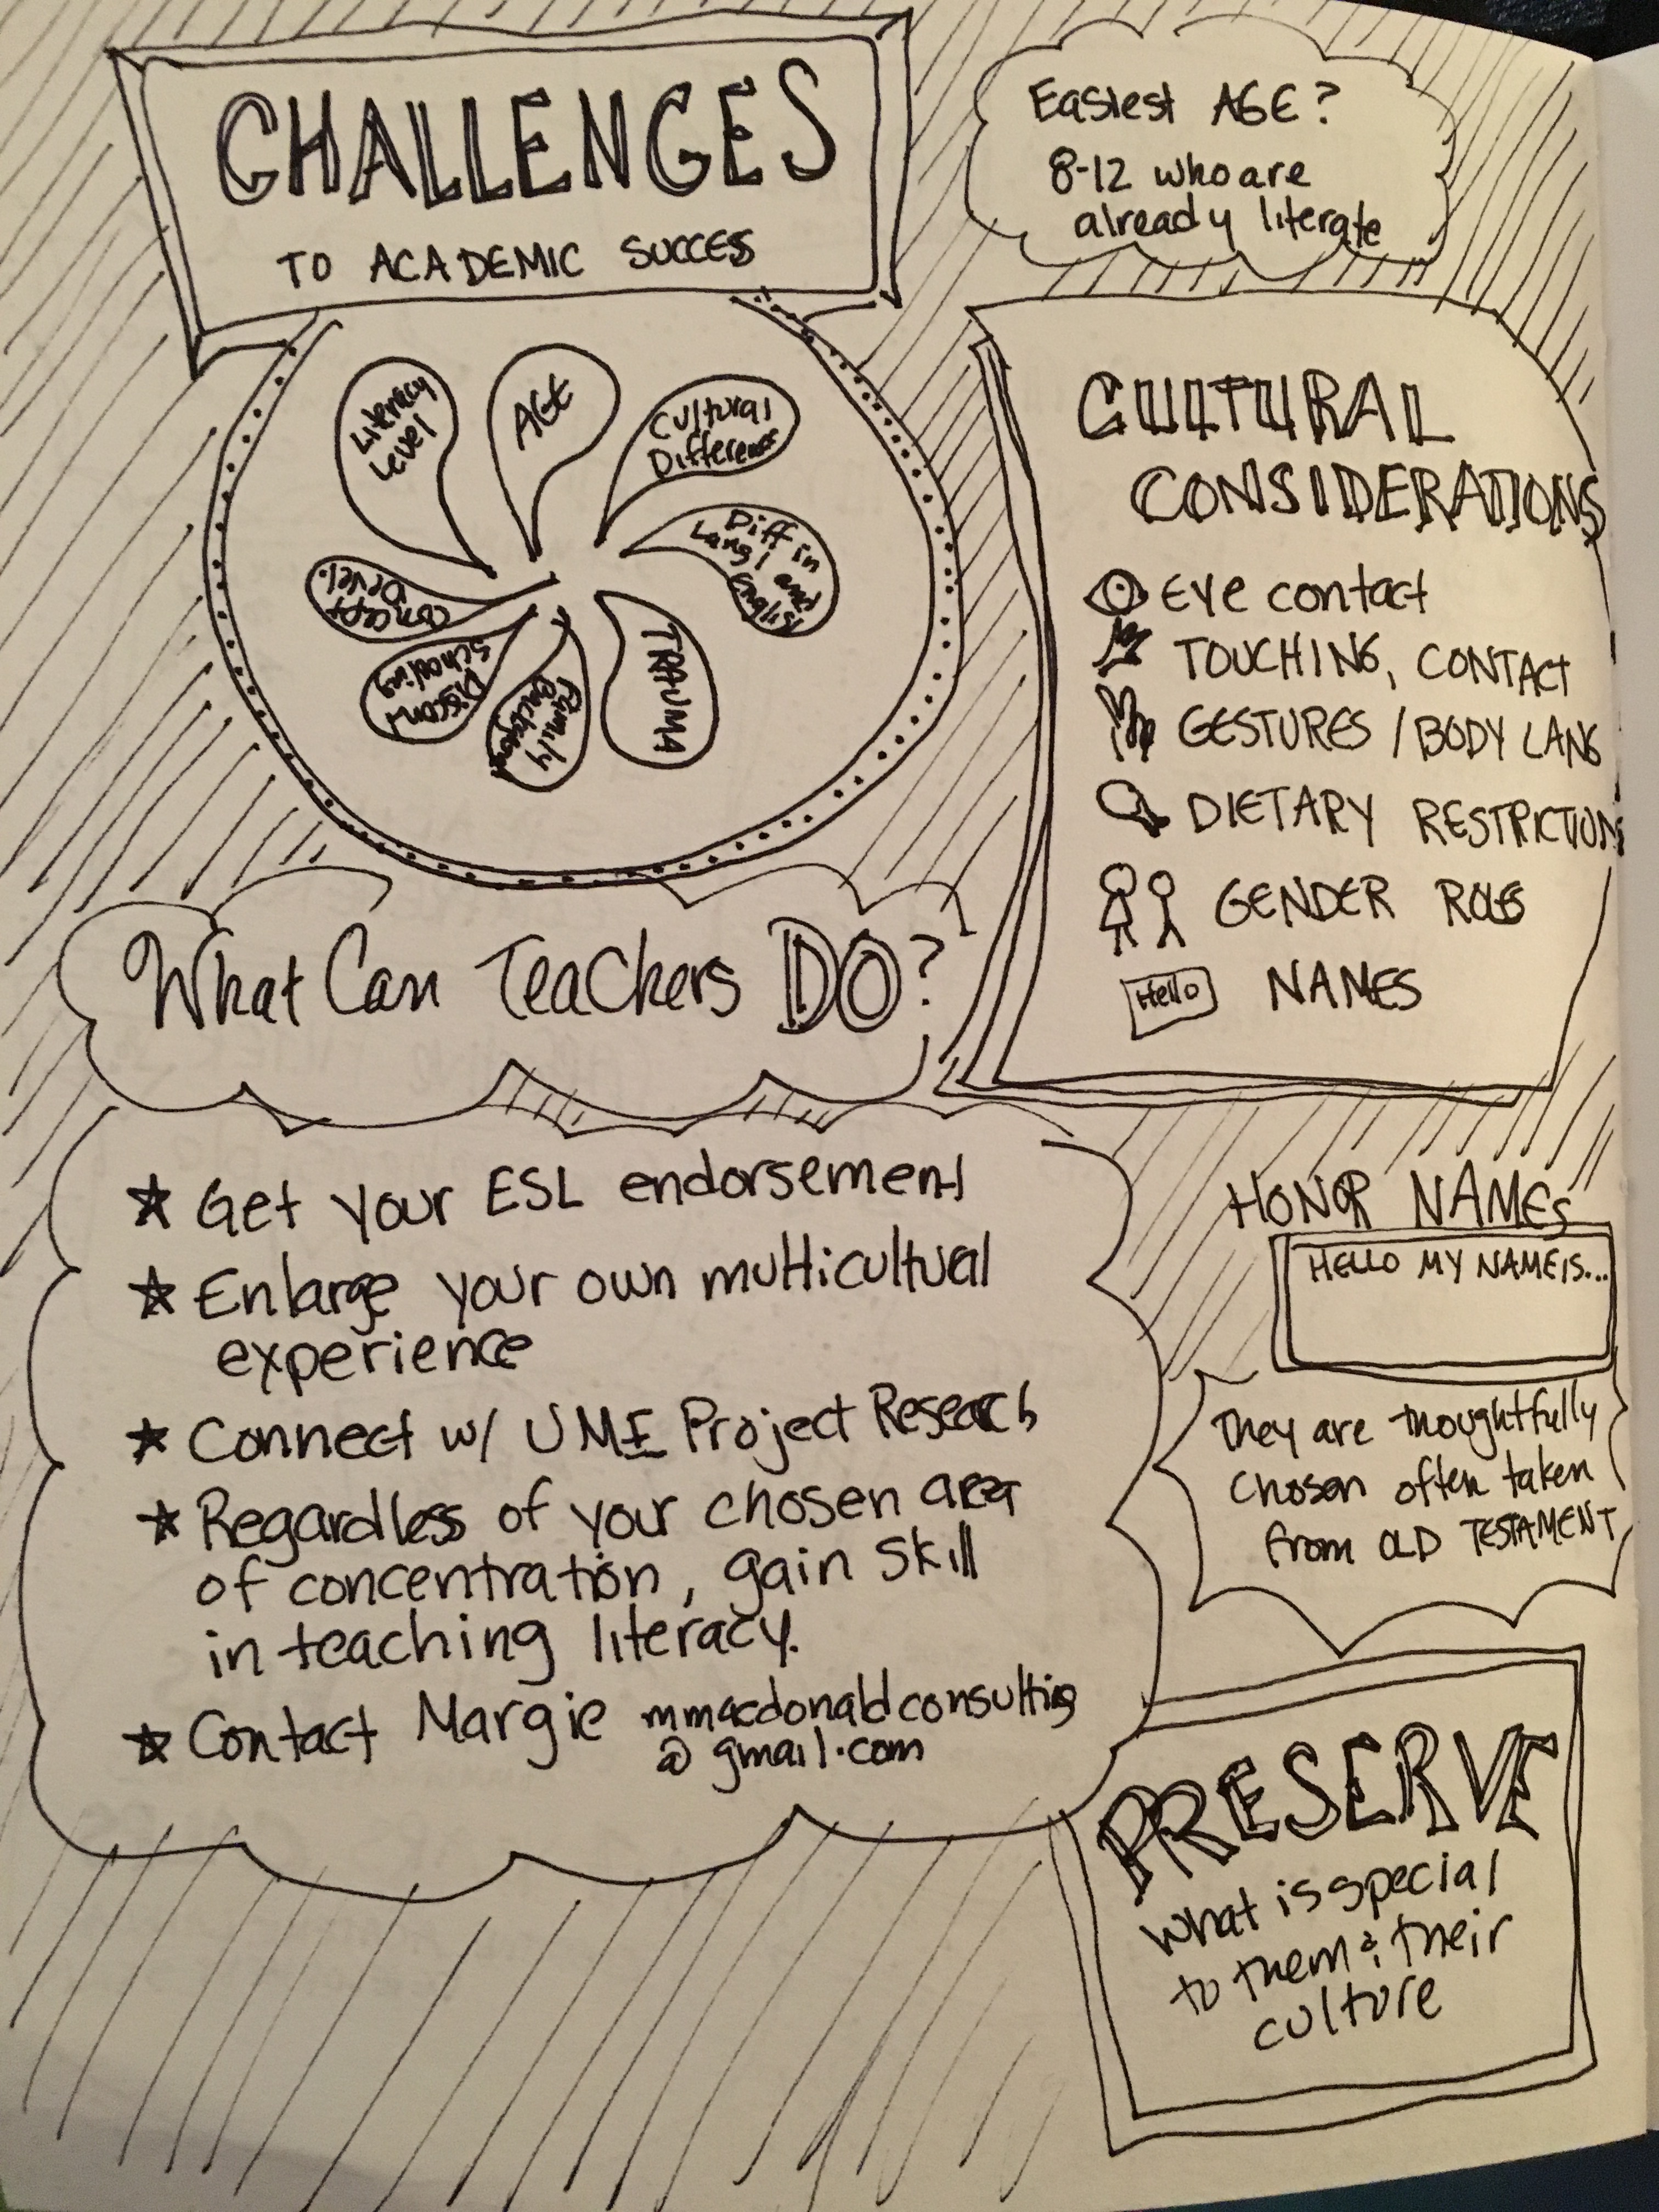 CHALLENGES
TO ACADEMIC SUCCESS
Easiest AGE?
8-12 who are
already literate
Literacy
Level
AGE
Cultural
Difference
Diff in
Lang 1 and
English
TRAUMA
Family
Background
Discont
Schooling
Concept
Devel.
CULTURAL
CONSIDERATIONS
Eye contact
TOUCHING, CONTACT
GESTURES / BODY LANG
DIETARY RESTRICTIONS
GENDER ROLES
Hello NAMES
What Can Teachers DO?
★ Get your ESL endorsement
★ Enlarge your own multicultural
experience
★ Connect w/ UME Project Research
★ Regardless of your chosen area
of concentration, gain skill
in teaching literacy.
★ Contact Margie mmacdonaldconsulting
@gmail.com
HONOR NAMES
HELLO MY NAME IS...
They are thoughtfully
chosen often taken
from OLD TESTAMENT
PRESERVE
what is special
to them & their
culture